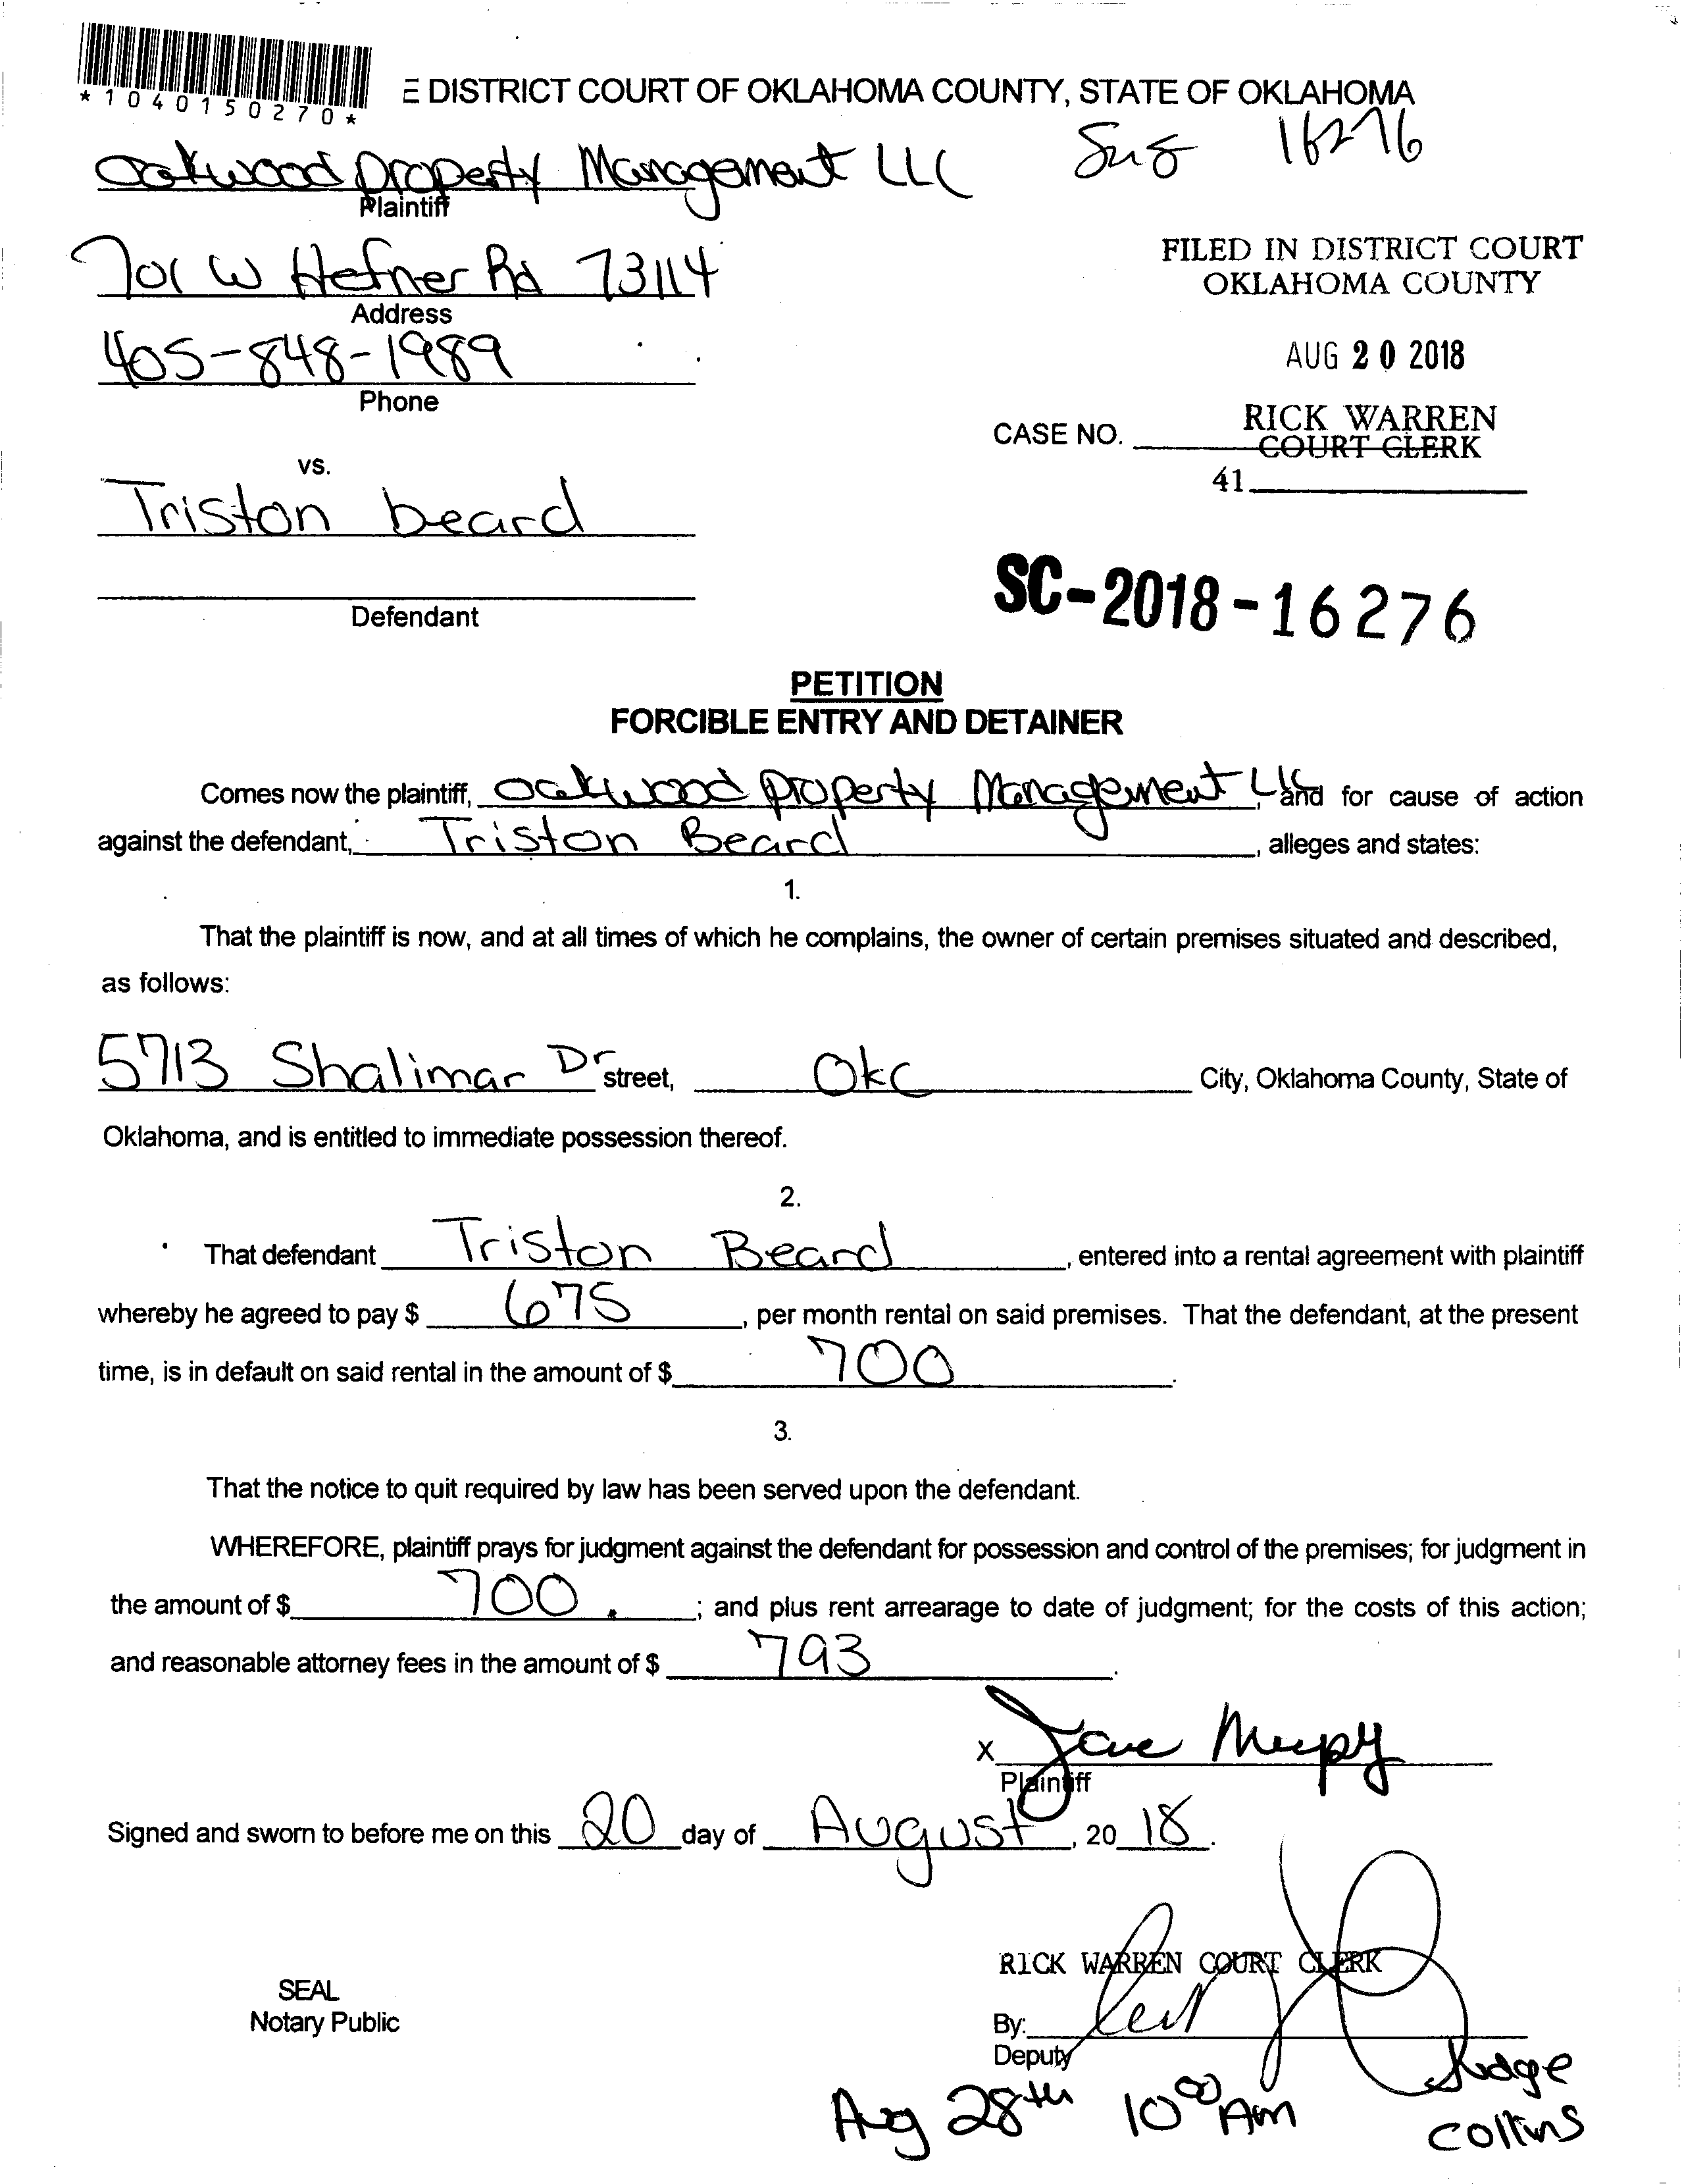 *1040150270*
E DISTRICT COURT OF OKLAHOMA COUNTY, STATE OF OKLAHOMA
16276
Oakwood Property Management LLC
Plaintiff
701 W Hefner Rd 73114
Address
FILED IN DISTRICT COURT
OKLAHOMA COUNTY
405-848-1989
Phone
AUG 20 2018
RICK WARREN
CASE NO.
COURT CLERK
41
vs.
Triston beard
Defendant
SC-2018-16276
PETITION
FORCIBLE ENTRY AND DETAINER
Comes now the plaintiff, Oakwood Property Management LLC, and for cause of action
against the defendant, Triston Beard, alleges and states:
1.
That the plaintiff is now, and at all times of which he complains, the owner of certain premises situated and described,
as follows:
5713 Shalimar Dr street, Okc City, Oklahoma County, State of
Oklahoma, and is entitled to immediate possession thereof.
2.
That defendant Triston Beard, entered into a rental agreement with plaintiff
whereby he agreed to pay $ 675, per month rental on said premises. That the defendant, at the present
time, is in default on said rental in the amount of $ 700.
3.
That the notice to quit required by law has been served upon the defendant.
WHEREFORE, plaintiff prays for judgment against the defendant for possession and control of the premises; for judgment in
the amount of $ 700. ; and plus rent arrearage to date of judgment; for the costs of this action;
and reasonable attorney fees in the amount of $ 793.
X
Plaintiff
Signed and sworn to before me on this 20 day of August, 20 18.
RICK WARREN COURT CLERK
SEAL
Notary Public
By:
Deputy
Judge
Aug 28th 10 00 Am
Collins